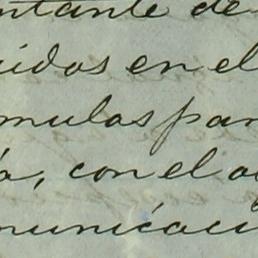 ntante de
uidos en el
mulas par
a, con el a
municaci